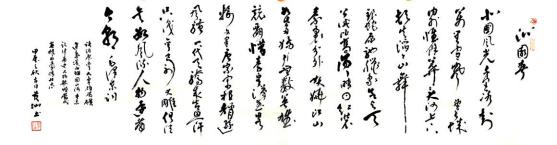 沁园春
北国风光千里冰封
万里雪飘望长城
内外惟余莽莽大河上下
顿失滔滔山舞银
蛇原驰蜡象欲与天
公试比高须晴日看红装
素裹分外妖娆江山
如此多娇引无数英雄
竞折腰惜秦皇汉武略
输文采唐宗宋祖稍逊
风骚一代天骄成吉思汗
只识弯弓射大雕俱往
矣数风流人物还看
今朝 毛泽东词